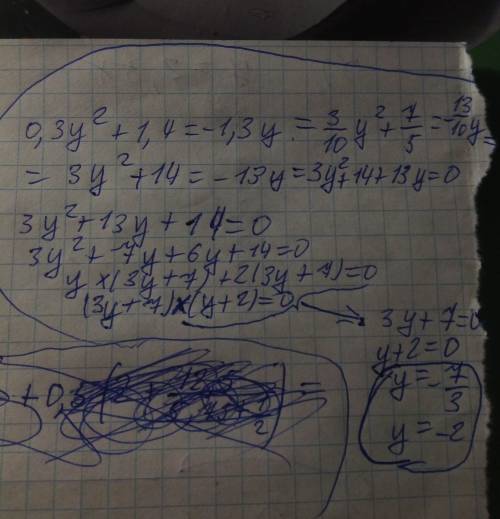 0,3y² + 1,4 = -1,3y = 3/10 y² + 7/5 = -13/10 y =
= 3y² + 14 = -13y = 3y² + 14 + 13y = 0
3y² + 13y + 14 = 0
3y² + 7y + 6y + 14 = 0
y × (3y + 7) + 2(3y + 7) = 0
(3y + 7) × (y + 2) = 0
3y + 7 = 0
y + 2 = 0
y = -7/3
y = -2
+ 0,